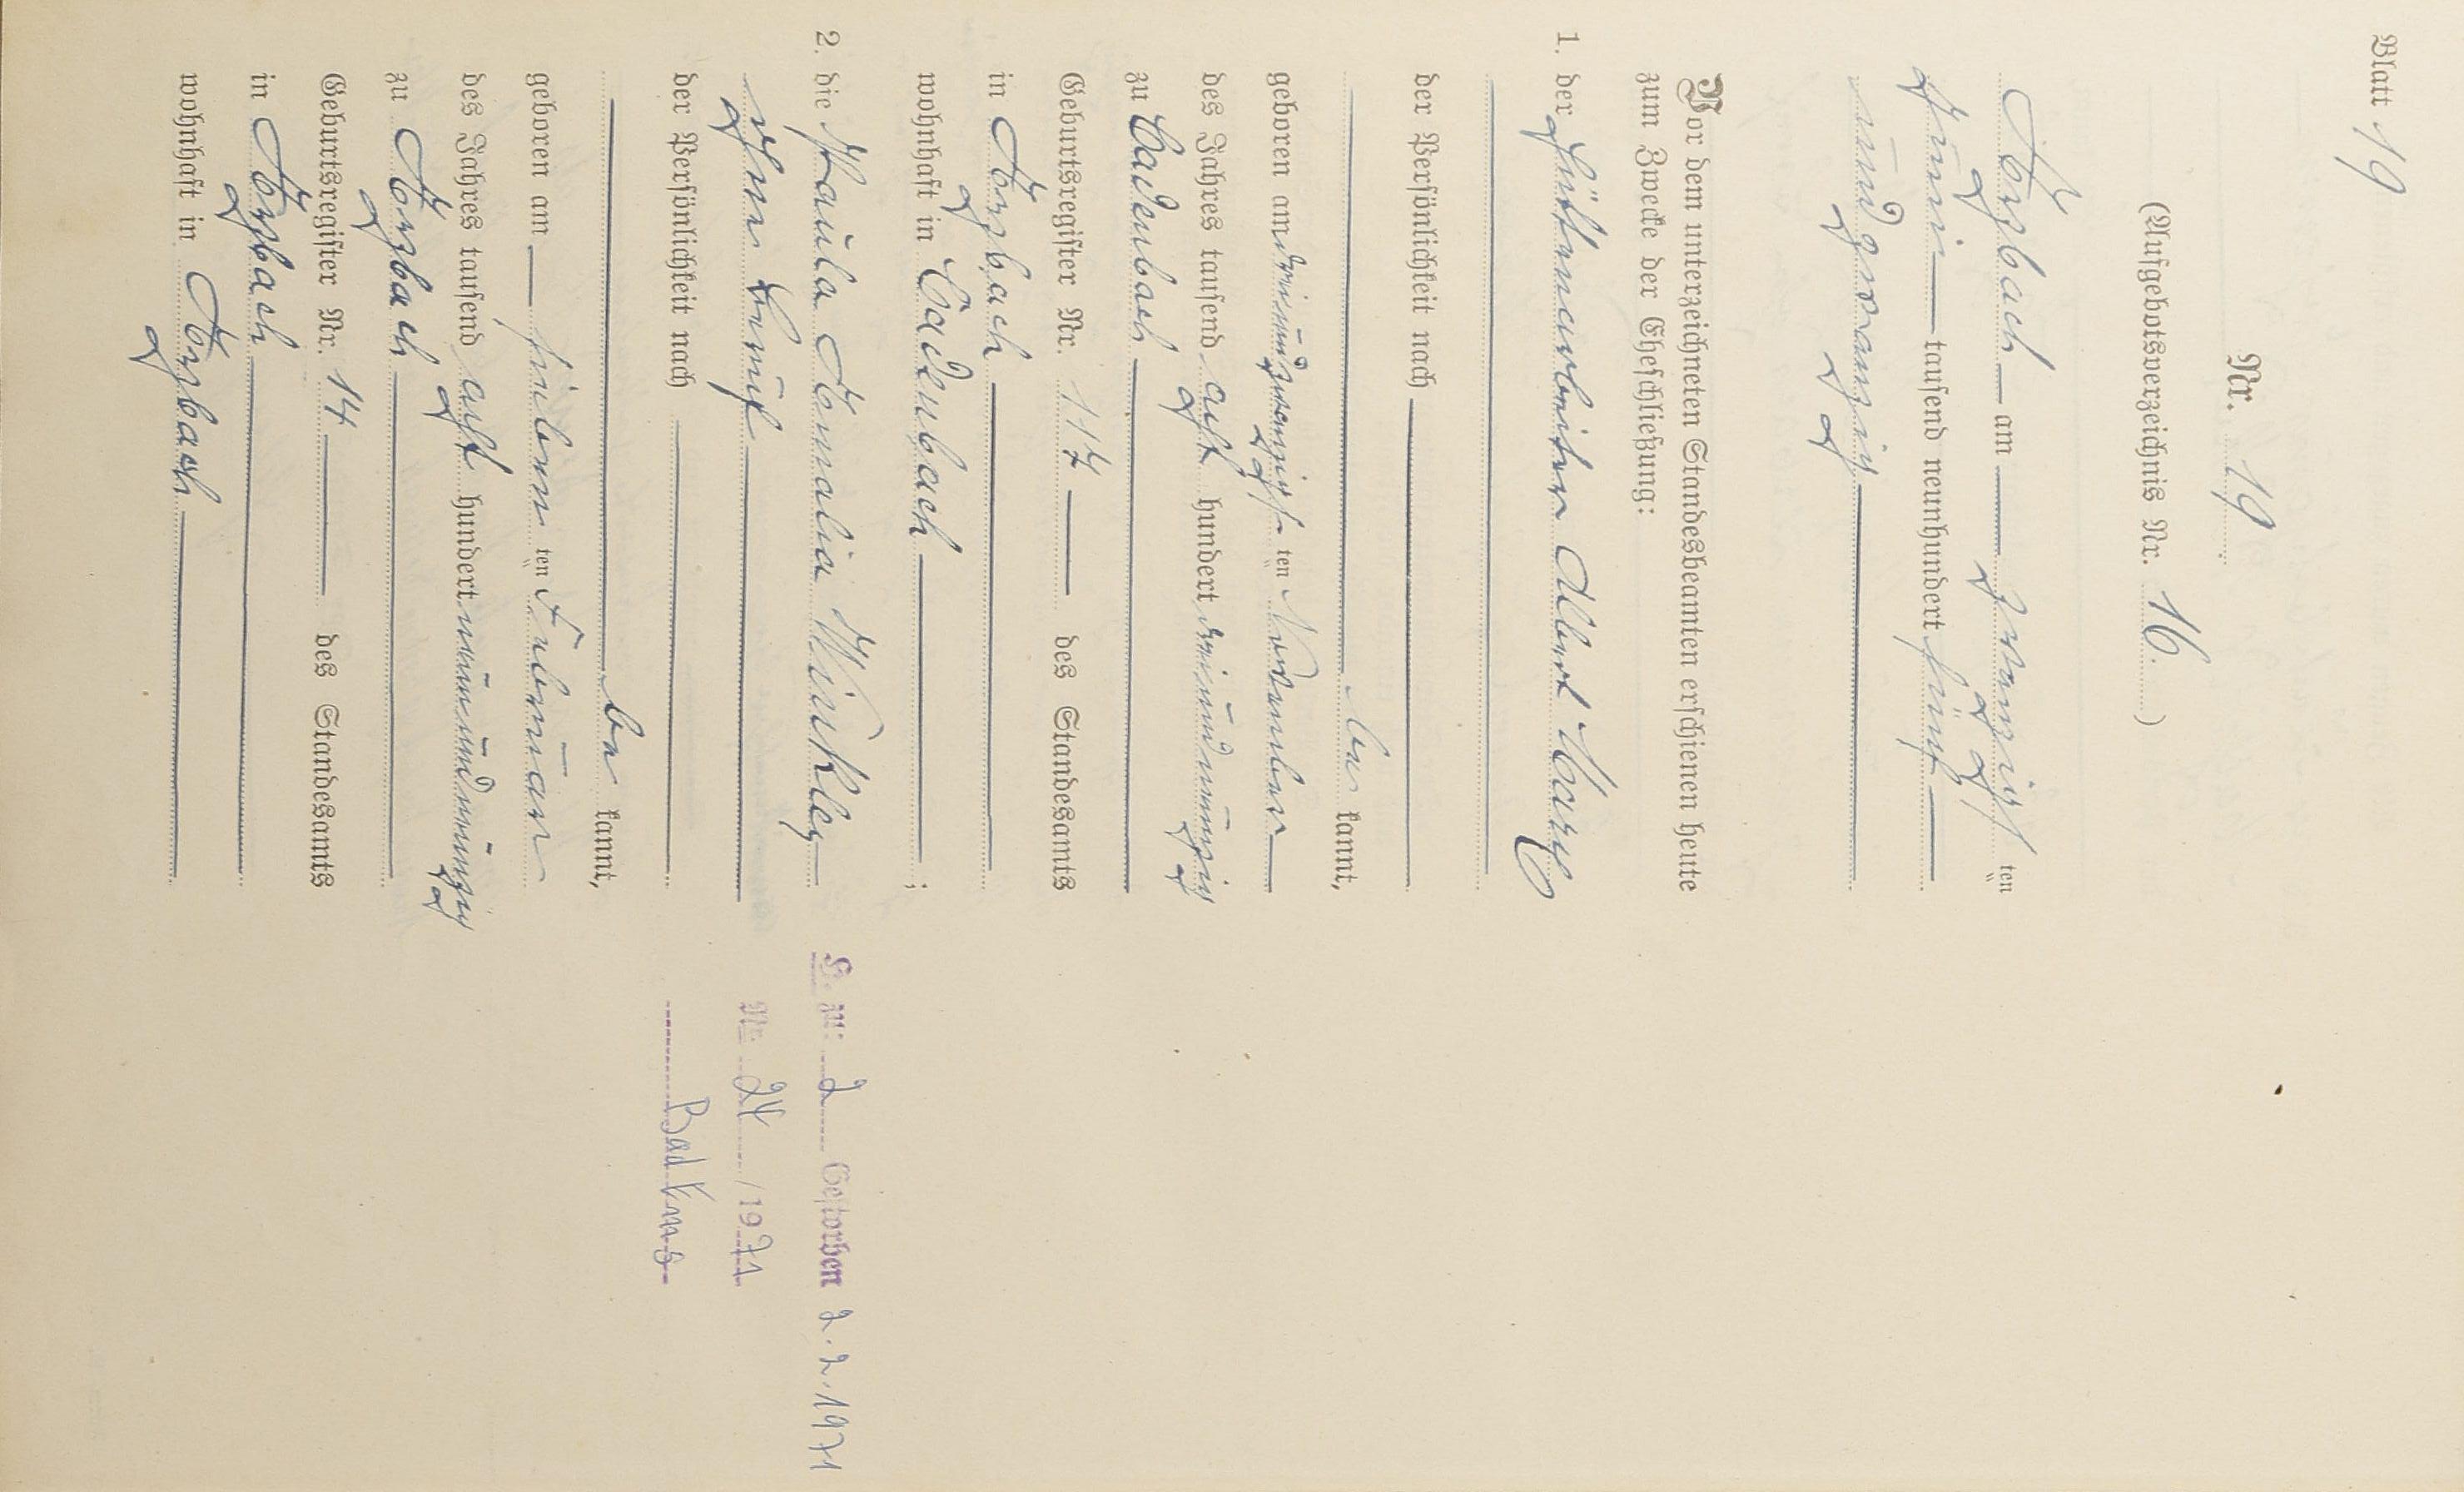 Blatt 19
Nr. 19
(Aufgebotsverzeichnis Nr. 16.)
Arzbach am zwanzigsten
Juni tausend neunhundert fünf
und zwanzig
Vor dem unterzeichneten Standesbeamten erschienen heute
zum Zwecke der Eheschließung:
1. der Hüttenarbeiter Albert Marx
der Persönlichkeit nach
be kannt,
geboren am dreiundzwanzigsten November
des Jahres tausend acht hundert dreiundneunzig
zu Cadenbach
Geburtsregister Nr. 117 des Standesamts
in Arzbach
wohnhaft in Cadenbach;
2. die Paula Amalia Winkler
ohne Beruf
der Persönlichkeit nach
be kannt,
geboren am siebenten Februar
des Jahres tausend acht hundert neunundneunzig
zu Arzbach
Geburtsregister Nr. 14 des Standesamts
in Arzbach
wohnhaft in Arzbach
E. zu: 2 Gestorben 2.2.1971
Nr. 24 / 1971
Bad Ems